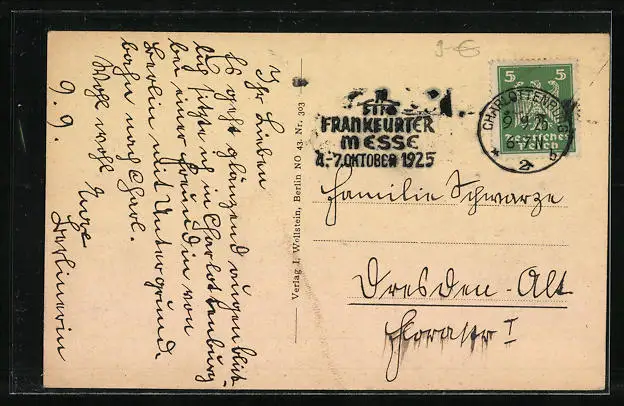 Ihr Lieben
Es geht glänzend augenblick-
lich sitze ich in Charlottenburg
bei einer Freundin von
Berlin mit Untergrund
bahn nach Charl.
Wohl wohl Eure
9.9. Berlinerin
Verlag J. Wollstein, Berlin NO 43. Nr. 303
3-€
FRANKFURTER
MESSE
4.-7. OKTOBER 1925
5 5
Deutsches
Reich
CHARLOTTENBURG
9.9.25
2
Familie Schwarze
Dresden-Alt
Florastr I